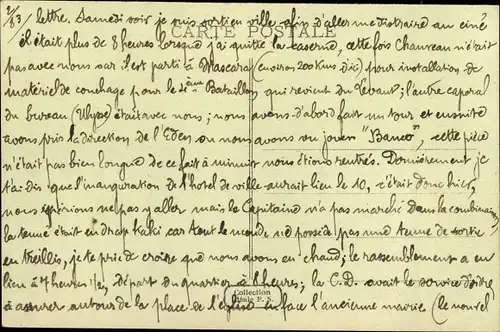 2/83 / lettre, Samedi soir je suis sorti en ville afin d'aller me distraire au ciné
CARTE POSTALE
il était plus de 8 heures lorsque j'ai quitté la caserne, cette fois Chauveau n'était
pas avec nous car il est parti à Mascara (environ 200 Kms d'ici) pour installation de
matériel de couchage pour le 2ième Bataillon qui revient du Levant; l'autre caporal
du bureau (Ulysse) était avec nous; nous avons d'abord fait un tour et ensuite
avons pris la direction de l'Eden où nous avons vu jouer "Banco", cette pièce
n'était pas bien longue de ce fait à minuit nous étions rentrés. Dernièrement je
t'ai dis que l'inauguration de l'hotel de ville aurait lieu le 10, c'était donc hier,
nous espérions ne pas y aller mais le Capitaine n'a pas marché dans la combinaison,
la tenue était en drap Kaki car tout le monde ne possède pas une tenue de sortie
en treillis, je te prie de croire que nous avons eu chaud; le rassemblement a eu
lieu à 7 heures 1/2, départ du quartier à 8 heures; la C.D. avait le service d'ordre
à assurer autour de la place de l'église en face l'ancienne mairie (le nouvel
Collection
Idéale P. S.